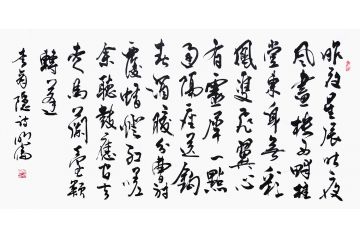 昨夜星辰昨夜
風畫樓西畔桂
堂東身無彩
鳳雙飛翼心
有靈犀一點
通隔座送鈎
春酒暖分曹射
覆蠟燈紅嗟
余聽鼓應官去
走馬蘭臺類
轉蓬
李商隱詩